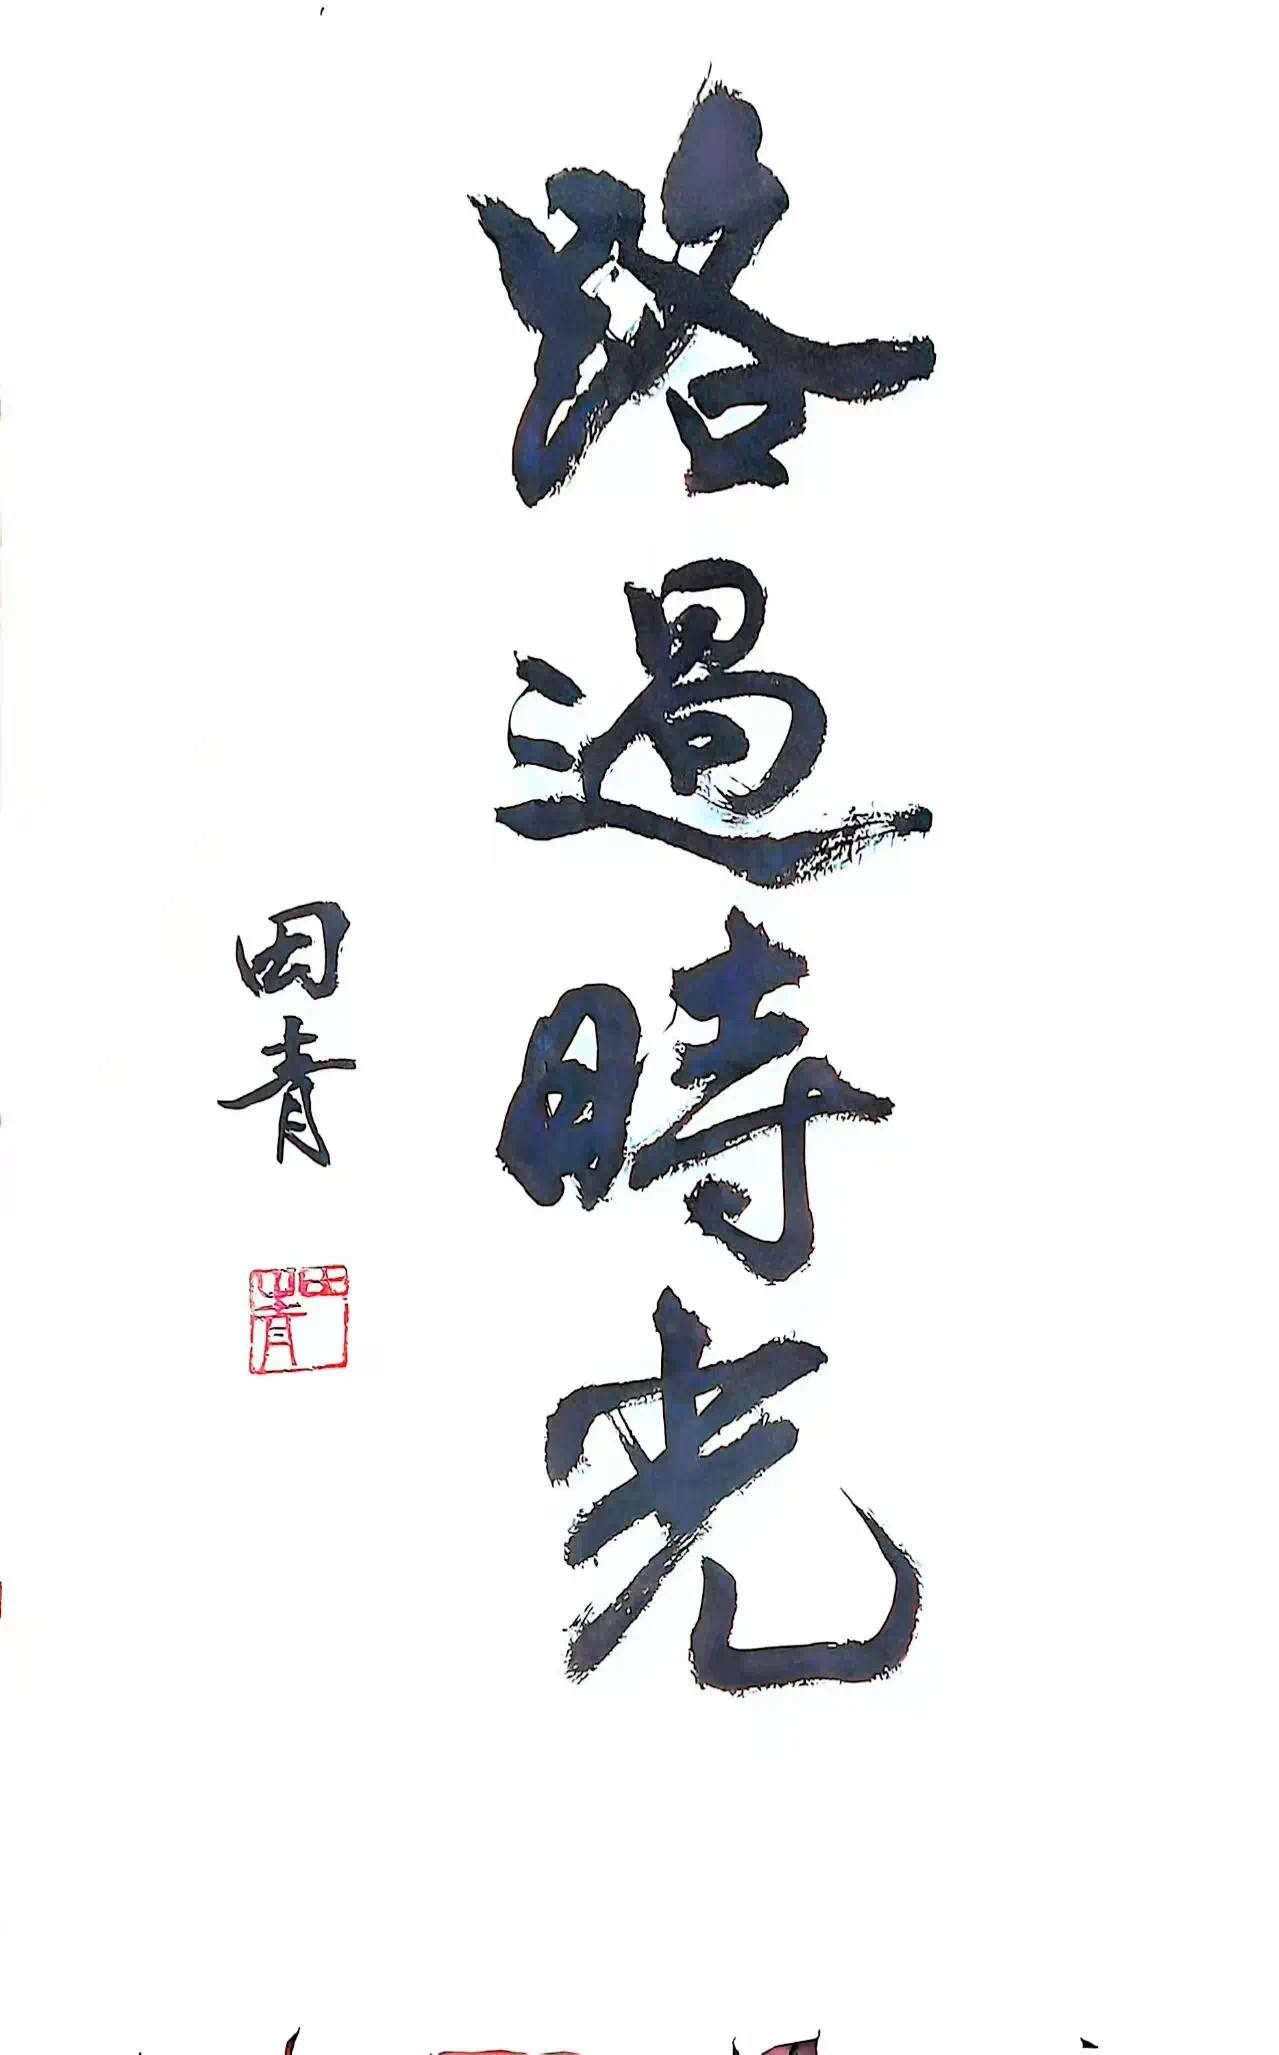 路過時光
田青
田青